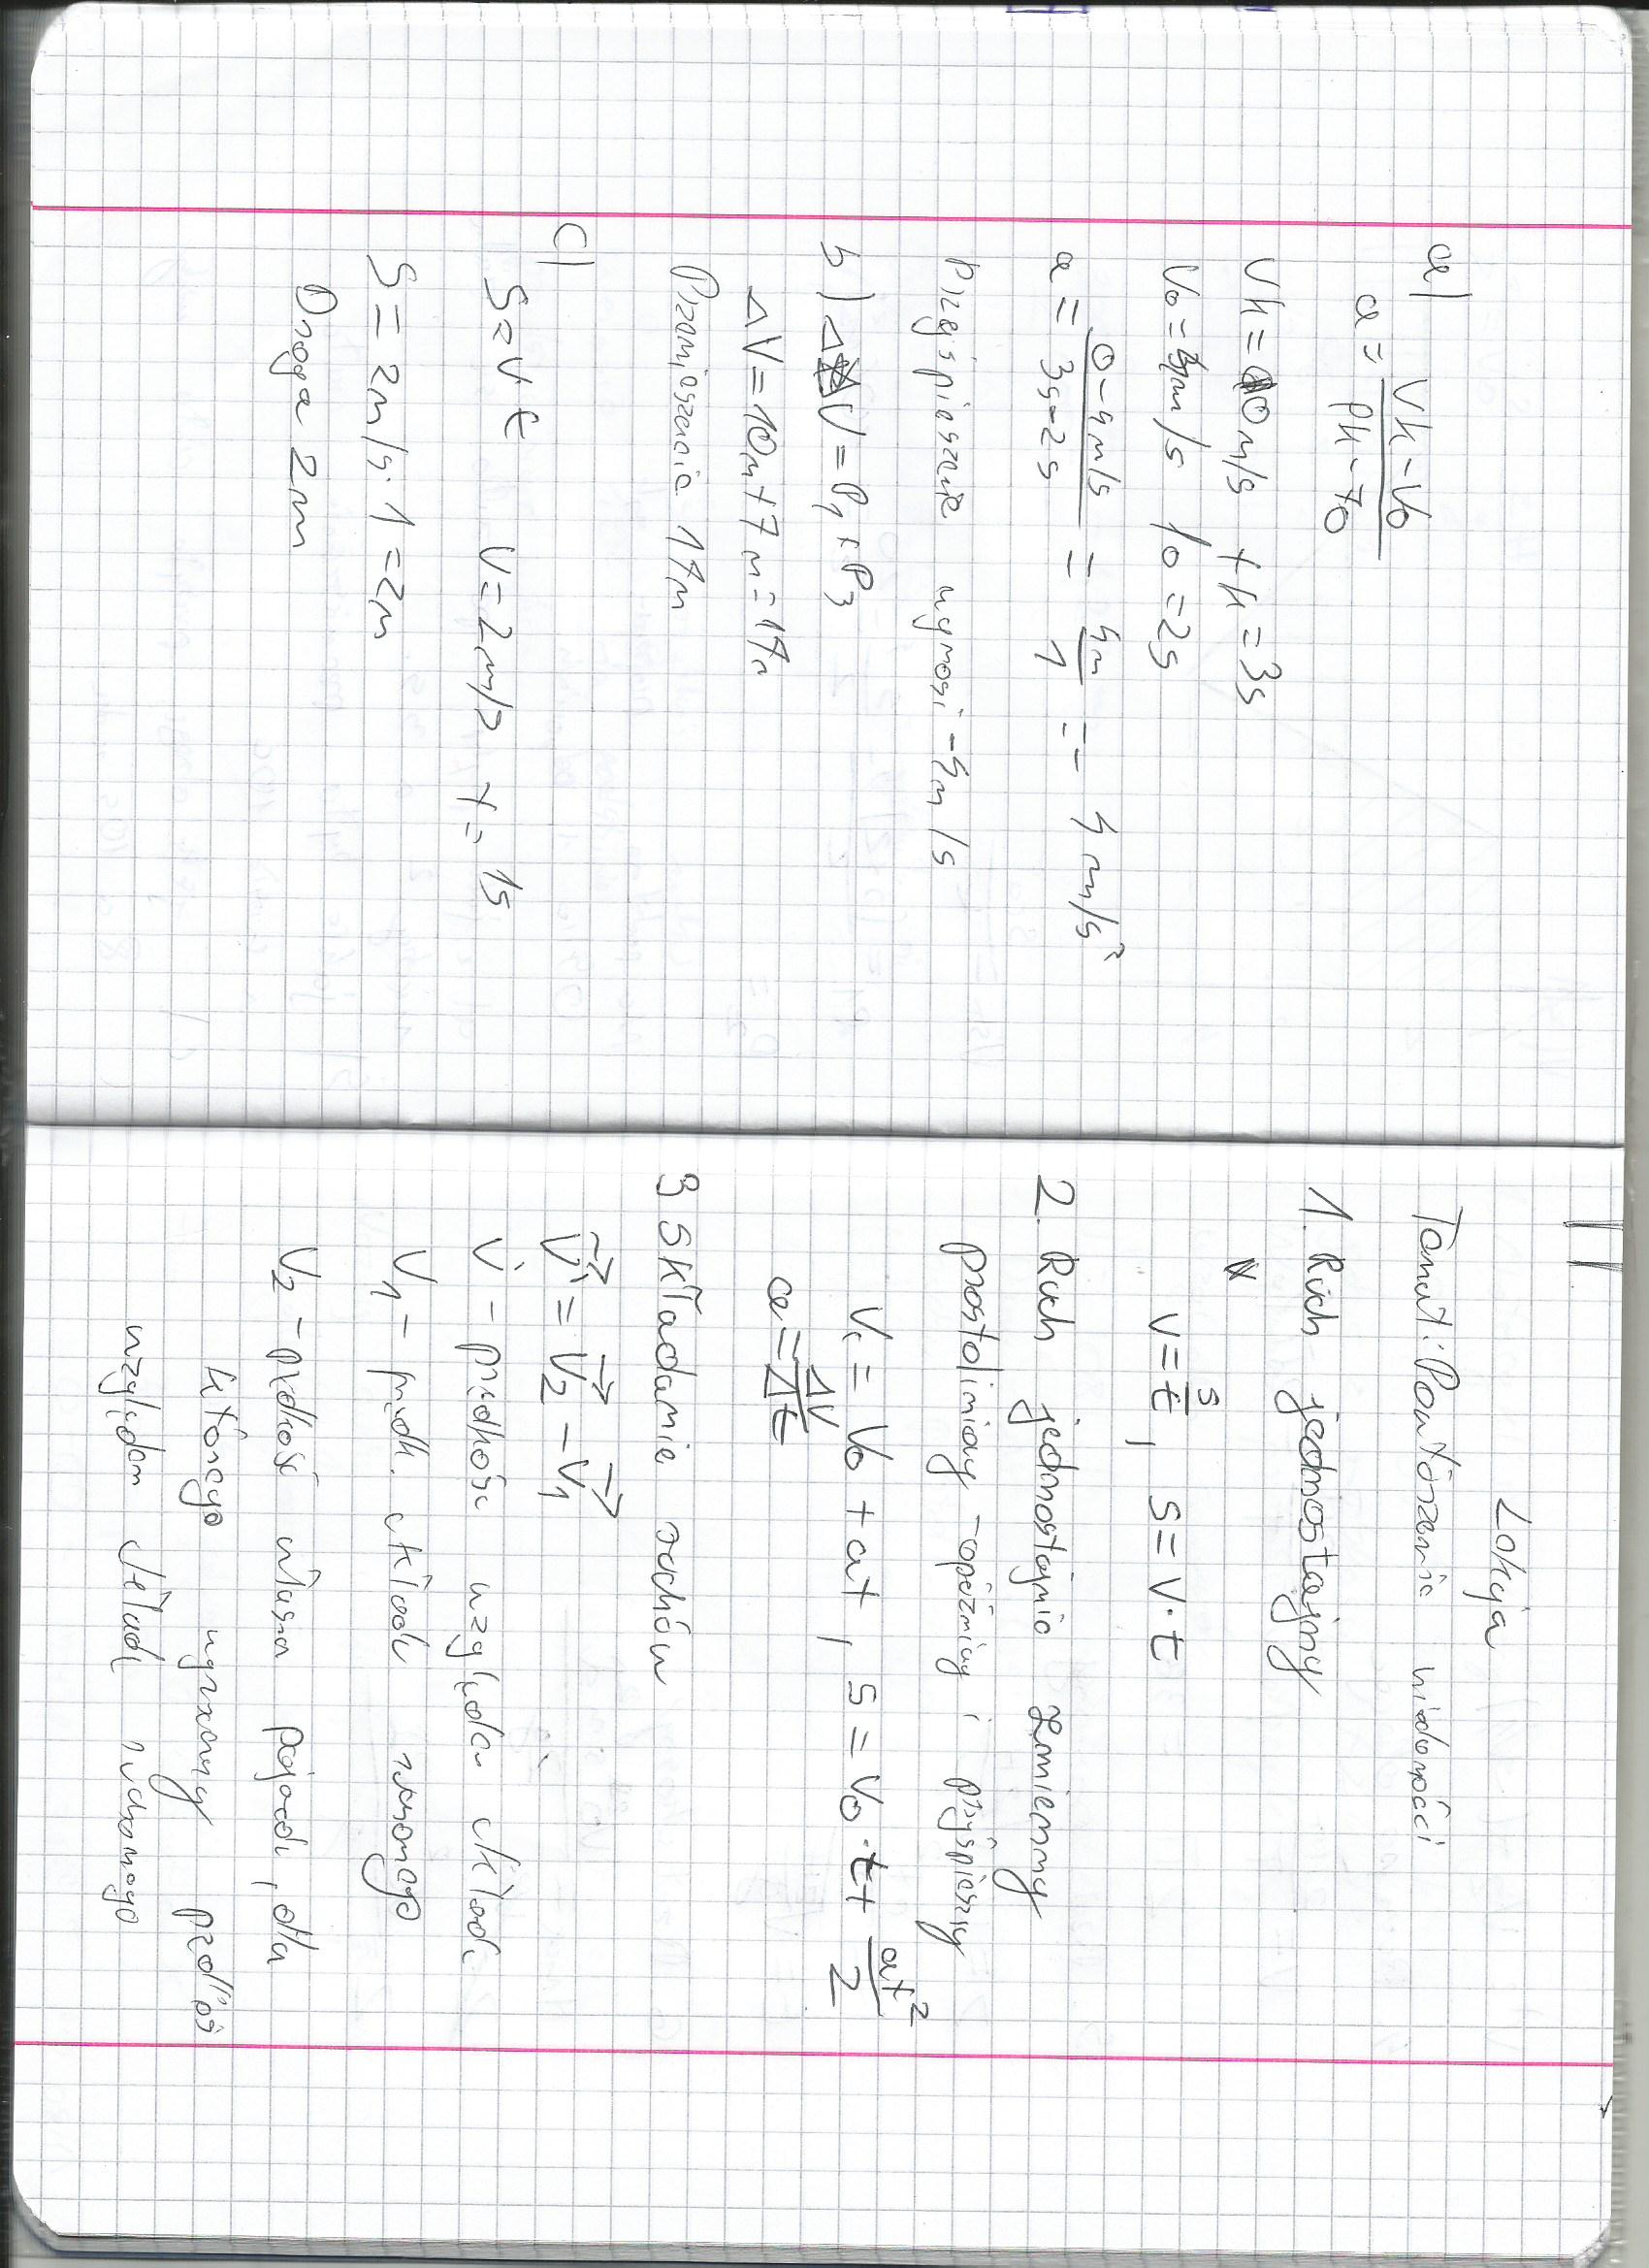 a)
a = Vk - V0 / pk - t0
Vk = 0 m/s tk = 3s
V0 = 4m/s t0 = 2s
a = 0 - 4m/s / 3s - 2s = 4m / 1 = - 4 m/s²
Przyspieszenie wynosi -4m/s
b) ΔV = P1 + P3
ΔV = 10m + 7m = 17m
Przemieszczenie 17m
c)
S = V t V = 2m/s t = 1s
S = 2m/s · 1 = 2m
Droga 2m
Lekcja
Temat: Powtórzenie wiadomości
1. Ruch jednostajny
V = s/t, S = V · t
2. Ruch jednostajnie zmienny
prostoliniowy - opóźniony i przyśpieszny
V = V0 + at, S = V0 · t + at²/2
a = ΔV/Δt
3 Składanie ruchów
V' = V2 - V1
V' - prędkość względem układu
V1 - prędk. układu ruchomego
V2 - prędkość własna pojazdu, dla
którego wyrazony
względem układu ruchomego